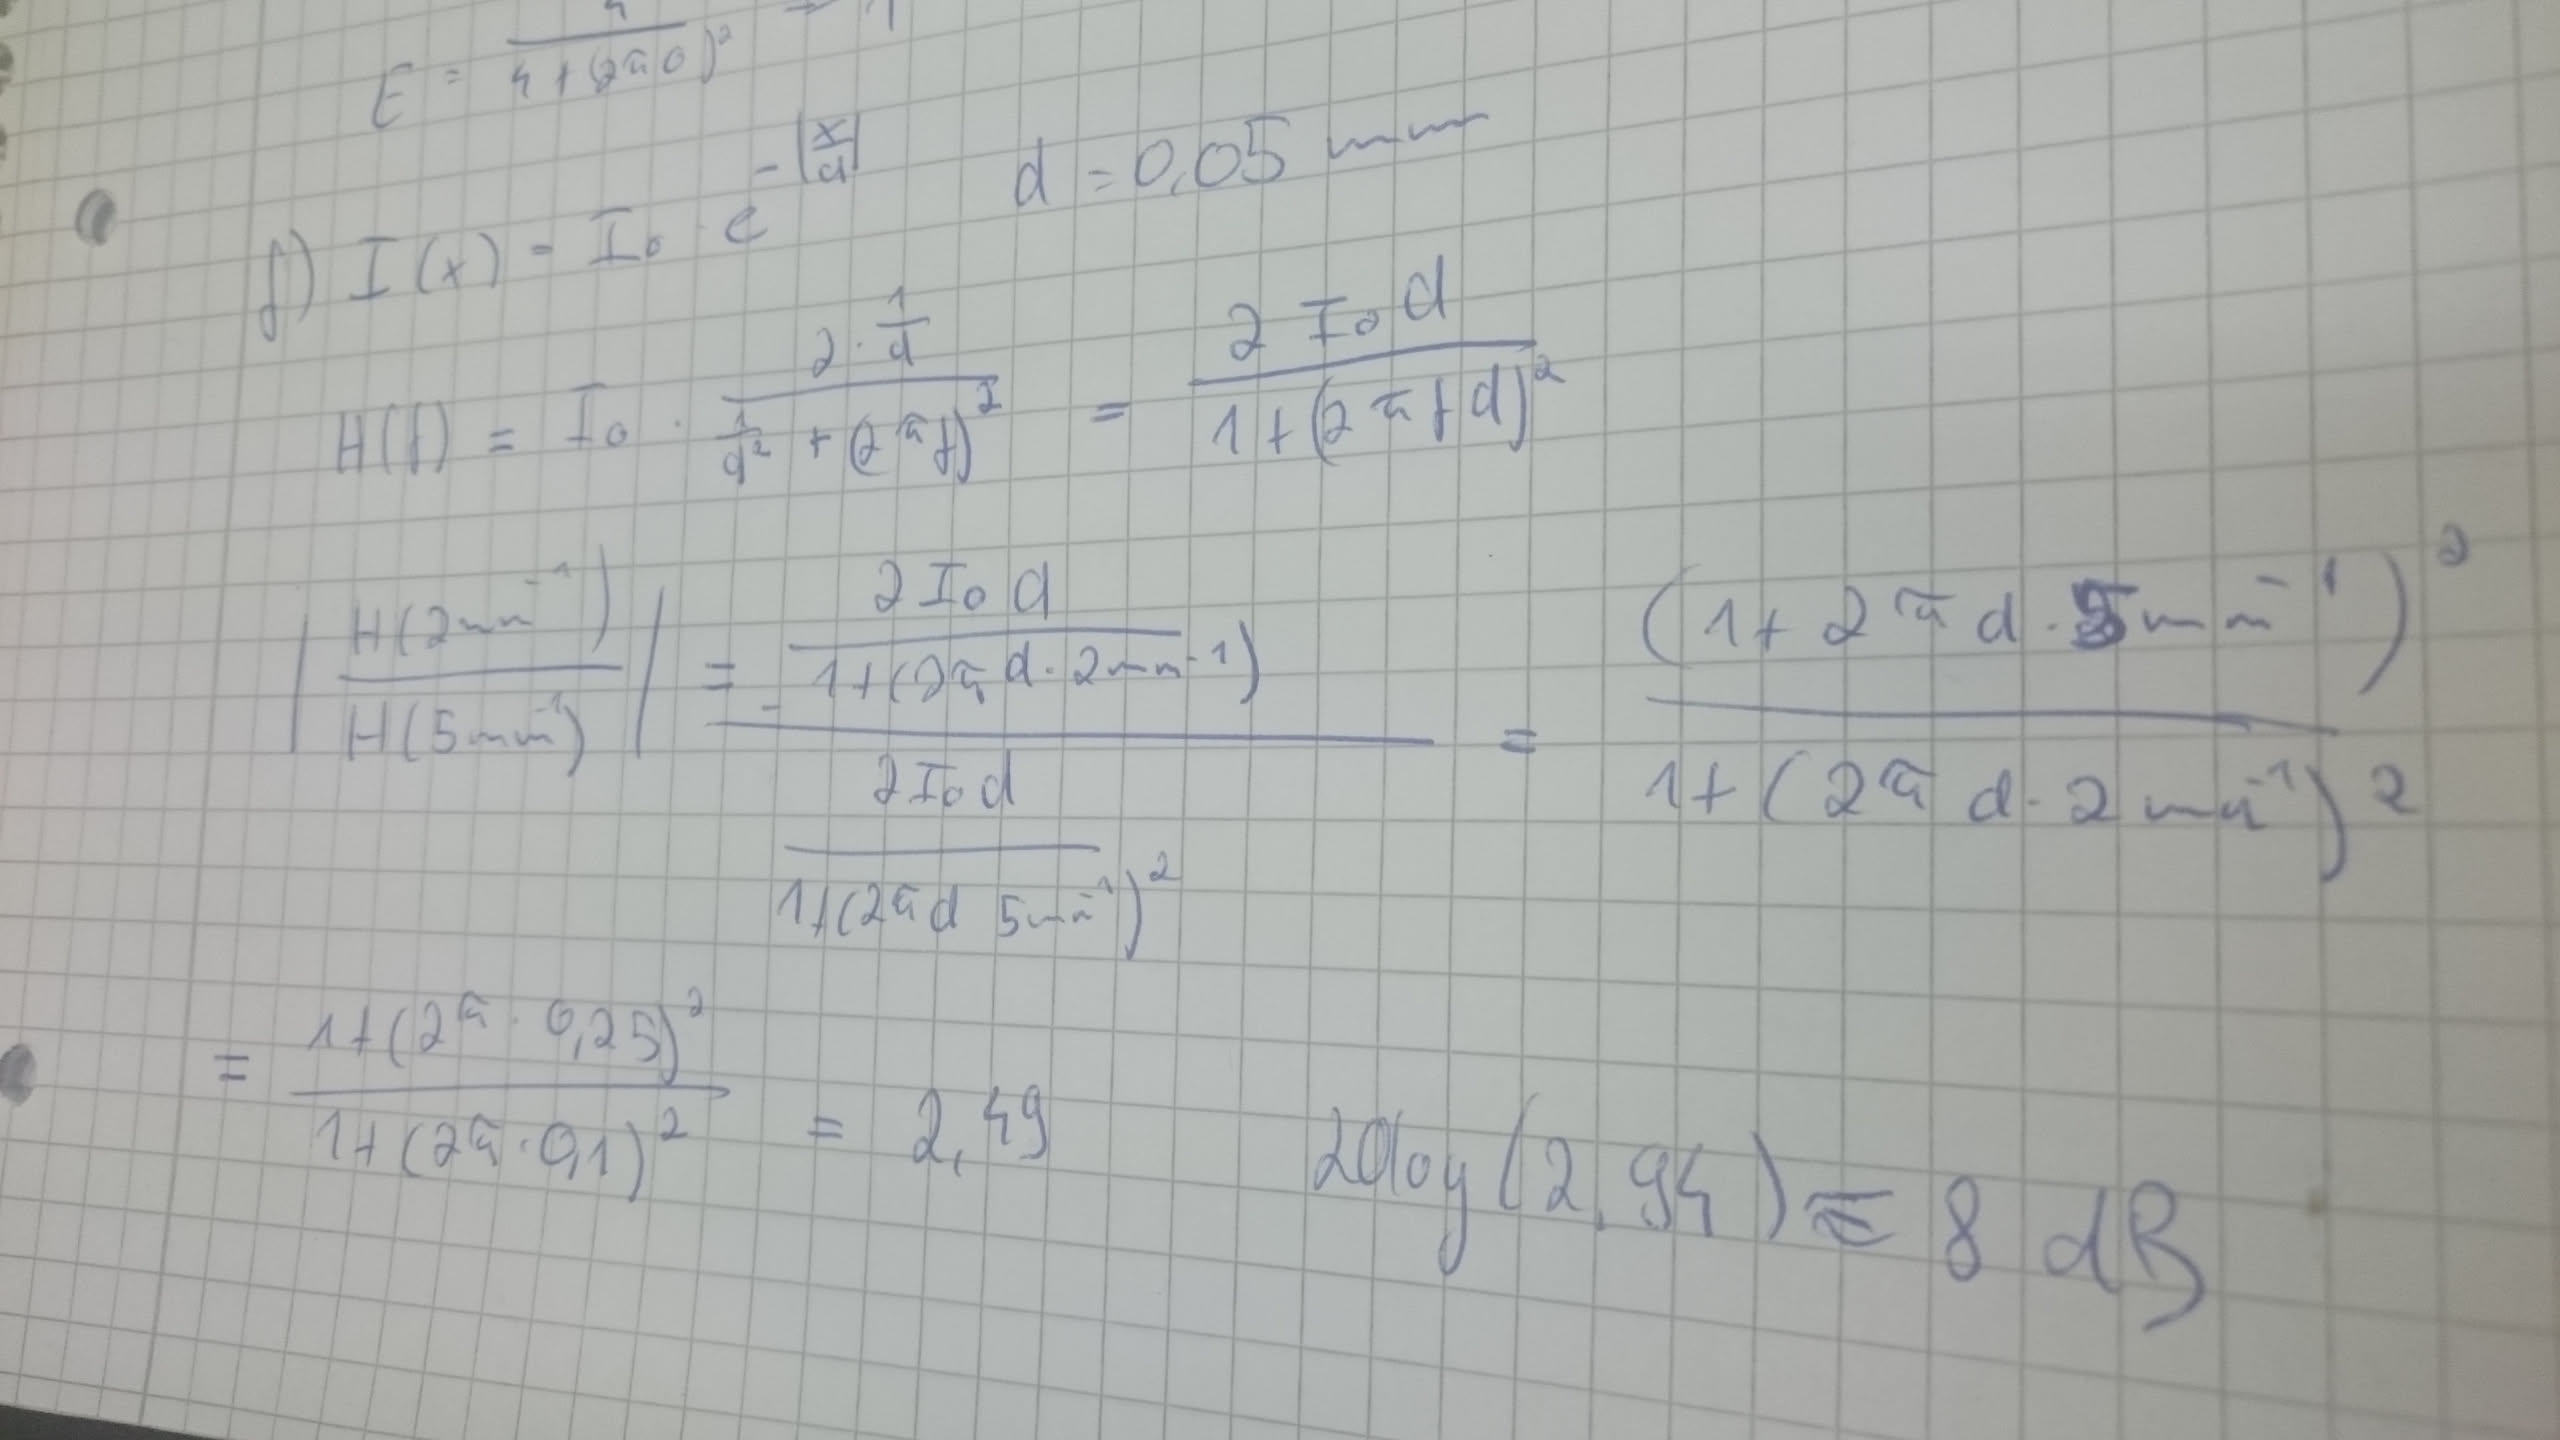 E = 4/(4+(2π0)² → 1
f) I(x) = I₀ · e^(-|x/d|) d = 0,05 mm
H(f) = I₀ · (2 · 1/d)/(1/d² + (2πf)²) = (2 I₀ d)/(1+(2πfd)²)
|H(2mm⁻¹)/H(5mm⁻¹)| = (2I₀d/(1+(2πd·2mm⁻¹)))/(2I₀d/(1+(2πd 5mm⁻¹)²)) = (1+2πd·5mm⁻¹)²/(1+(2πd·2mm⁻¹)²)
= (1+(2π·0,25)²)/(1+(2π·0,1)²) = 2,49 20log(2,94) ≈ 8 dB